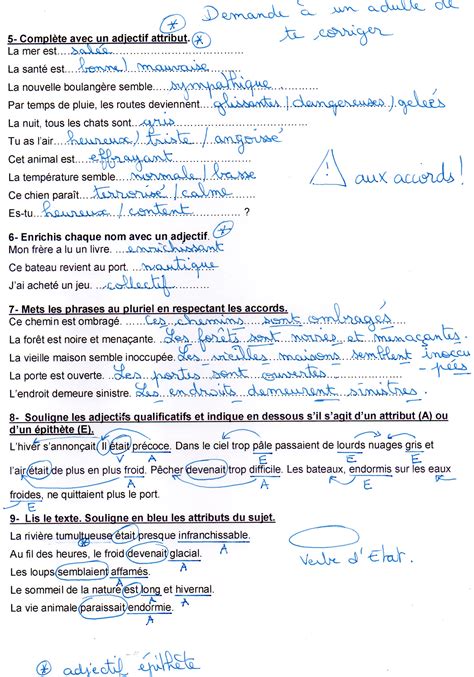 Demande à un adulte de
te corriger
5- Complète avec un adjectif attribut.
La mer est....salée
La santé est....bonne / mauvaise
La nouvelle boulangère semble....sympathique
Par temps de pluie, les routes deviennent....glissantes / dangereuses / gelées
La nuit, tous les chats sont....gris
Tu as l'air....heureux / triste / angoissé
Cet animal est....effrayant
La température semble....normale / basse
Ce chien paraît....terrorisé / calme
Es-tu....heureux / content.... ?
! aux accords !
6- Enrichis chaque nom avec un adjectif.
Mon frère a lu un livre. ...enrichissant
Ce bateau revient au port. ...nautique
J'ai acheté un jeu. ...collectif
7- Mets les phrases au pluriel en respectant les accords.
Ce chemin est ombragé. ....Ces chemins sont ombragés
La forêt est noire et menaçante. Les forêts sont noires et menaçantes.
La vieille maison semble inoccupée. Les vieilles maisons semblent inoccu
-pées
La porte est ouverte. ..Les portes sont ouvertes
L'endroit demeure sinistre. Les endroits demeurent sinistres.
8- Souligne les adjectifs qualificatifs et indique en dessous s'il s'agit d'un attribut (A) ou
d'un épithète (E).
L'hiver s'annonçait. Il était précoce. Dans le ciel trop pâle passaient de lourds nuages gris et
V A E E E
l'air était de plus en plus froid. Pêcher devenait trop difficile. Les bateaux, endormis sur les eaux
A A E
froides, ne quittaient plus le port.
E
9- Lis le texte. Souligne en bleu les attributs du sujet.
La rivière tumultueuse était presque infranchissable.
A
Au fil des heures, le froid devenait glacial.
A
Les loups semblaient affamés.
A
Le sommeil de la nature est long et hivernal.
A A
La vie animale paraissait endormie.
A
Verbe d'Etat.
adjectif épithète